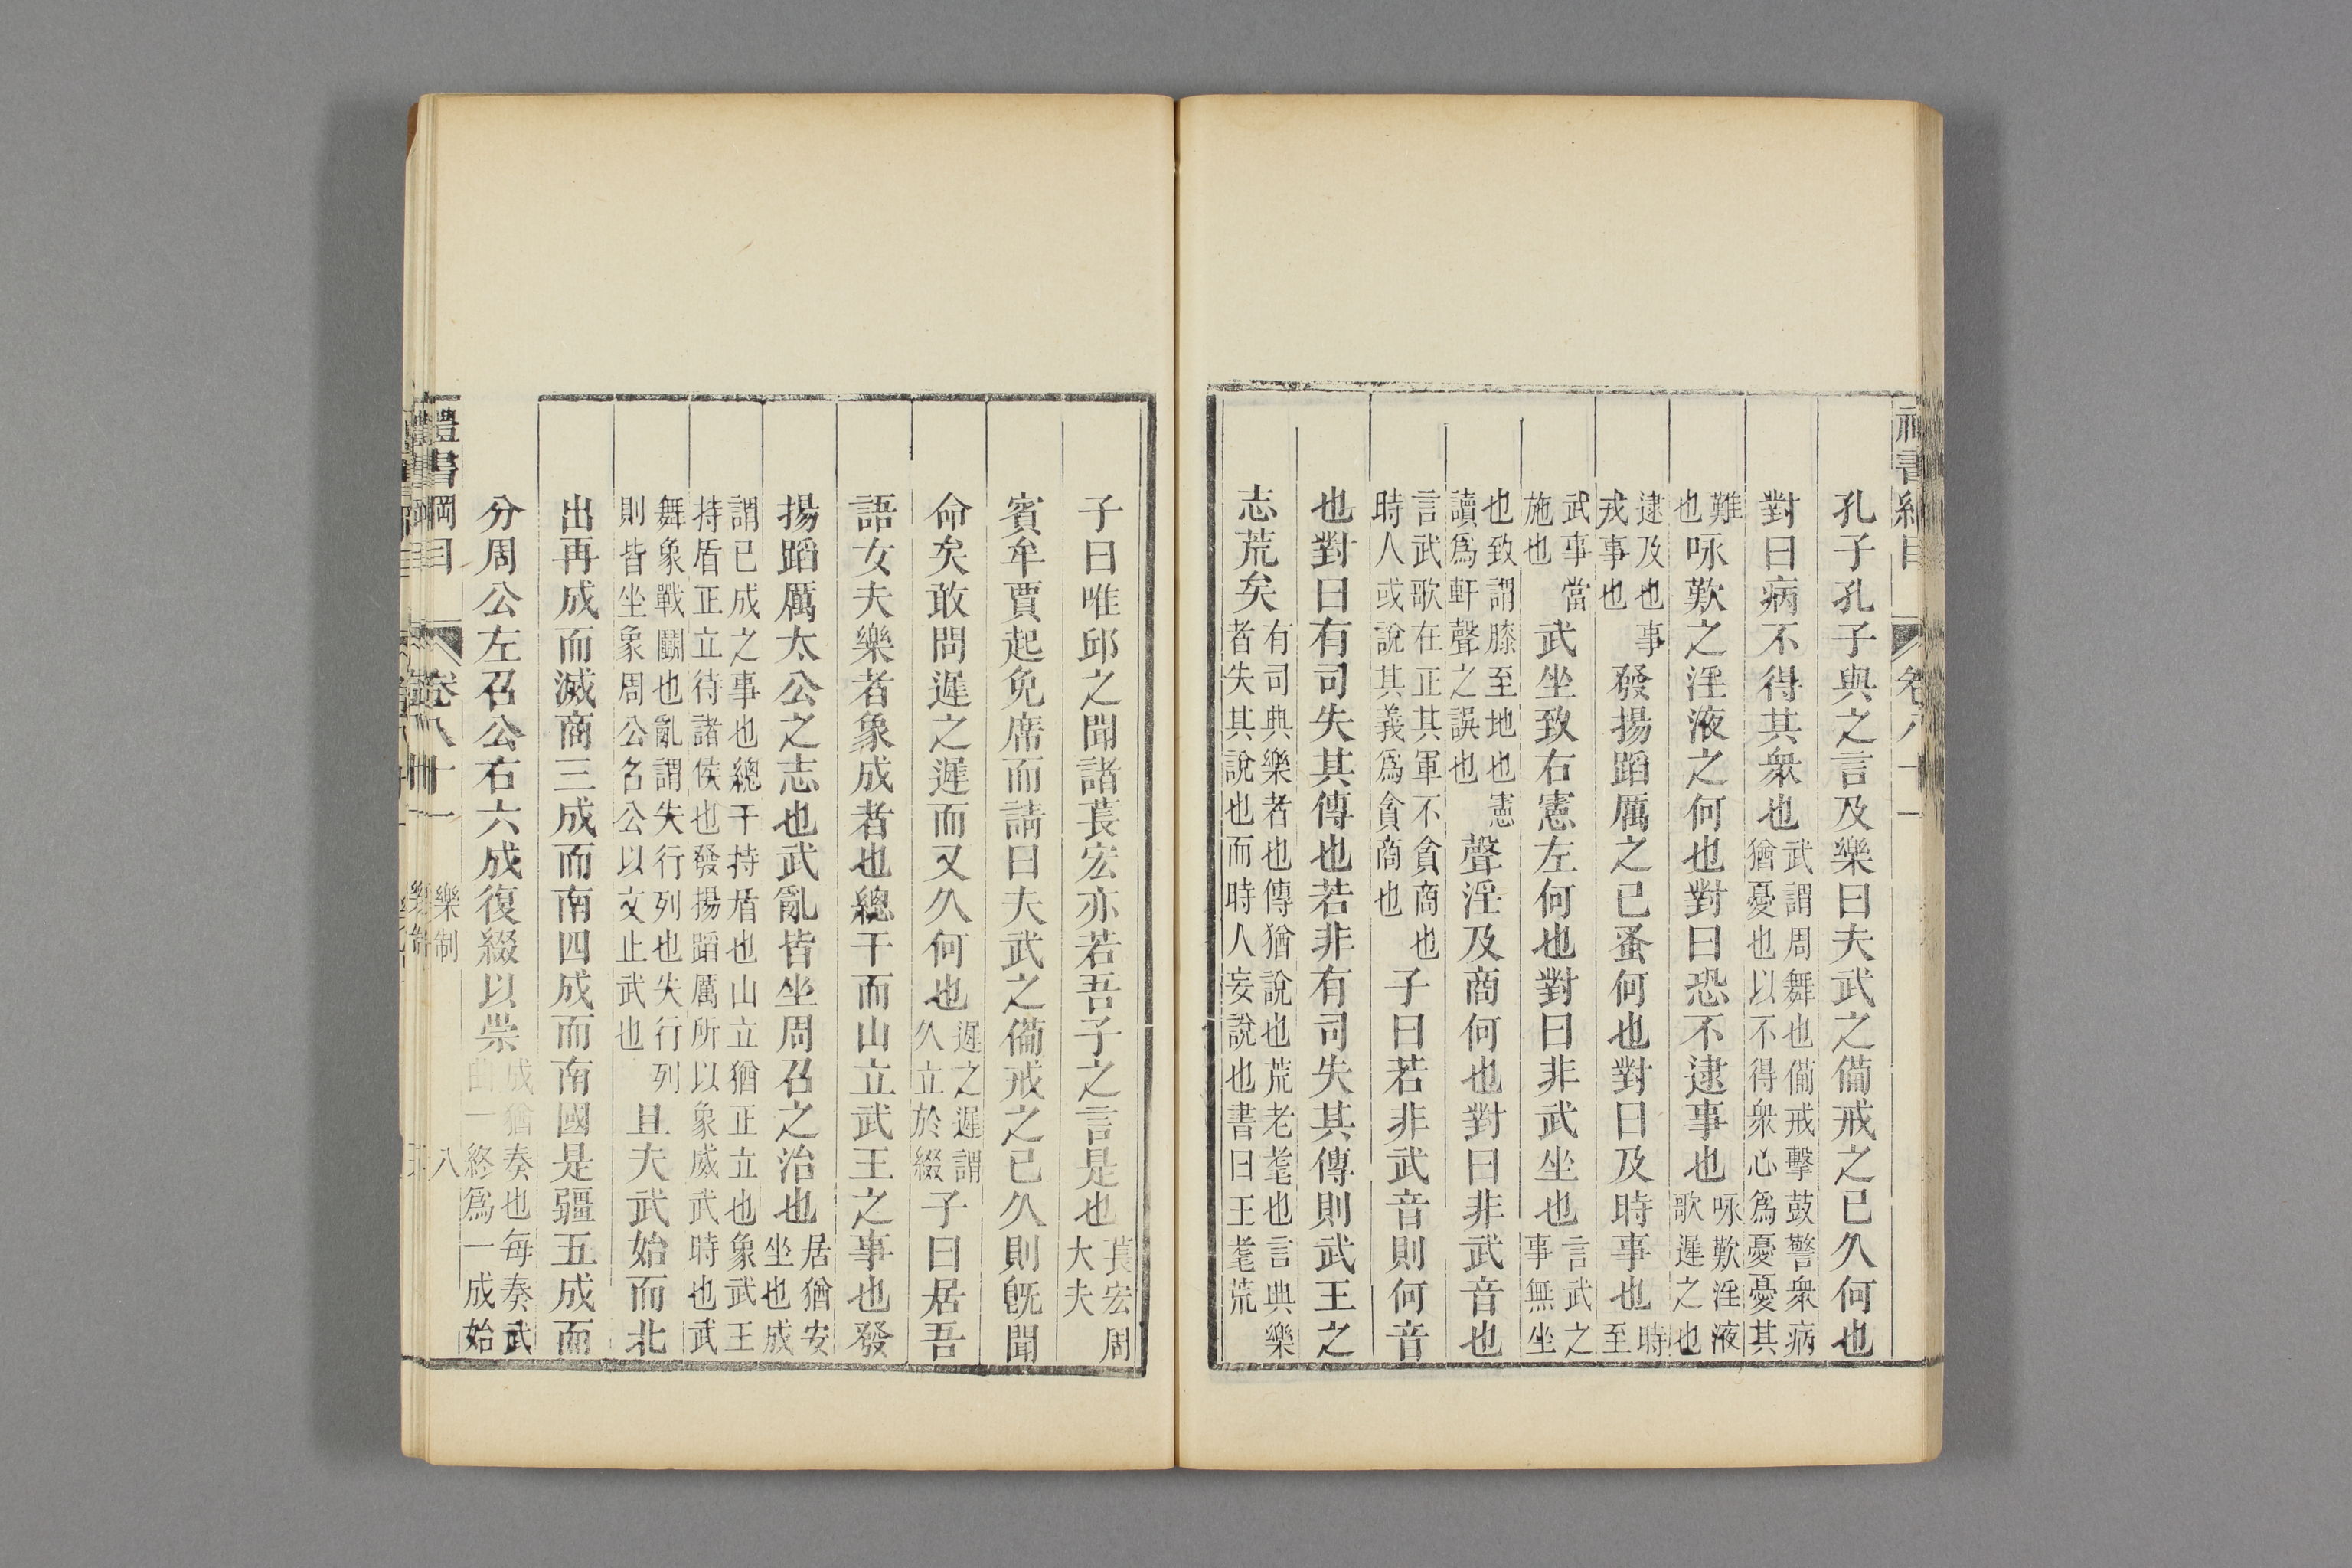 孔子孔子與之言及樂曰夫武之備戒之已久何也
對曰病不得其衆也武謂周舞也備戒擊鼓警衆病猶憂也以不得衆心爲憂憂其
難也咏歎之淫液之何也對曰恐不逮事也咏歎淫液歌遲之也
逮及也事戎事也發揚蹈厲之已蚤何也對曰及時事也時至
武事當施也武坐致右憲左何也對曰非武坐也言武之事無坐
也致謂膝至地也憲讀爲軒聲之誤也聲淫及商何也對曰非武音也
言武歌在正其軍不貪商也時人或說其義爲貪商也子曰若非武音則何音
也對曰有司失其傳也若非有司失其傳則武王之
志荒矣有司典樂者也傳猶說也荒老耄也言典樂者失其說也而時人妄說也書曰王耄荒
子曰唯邱之聞諸萇宏亦若吾子之言是也萇宏周大夫
賓牟賈起免席而請曰夫武之備戒之已久則旣聞
命矣敢問遲之遲而又久何也遲之遲謂久立於綴子曰居吾
語女夫樂者象成者也總干而山立武王之事也發
揚蹈厲太公之志也武亂皆坐周召之治也居猶安坐也成
謂已成之事也總干持盾也山立猶正立也象武王持盾正立待諸侯也發揚蹈厲所以象威武時也武
舞象戰鬬也亂謂失行列也失行列則皆坐象周公召公以文止武也且夫武始而北
出再成而滅商三成而南四成而南國是疆五成而
分周公左召公右六成復綴以崇成猶奏也每奏武曲一終爲一成始
禮書綱目 卷八十一 樂制 八